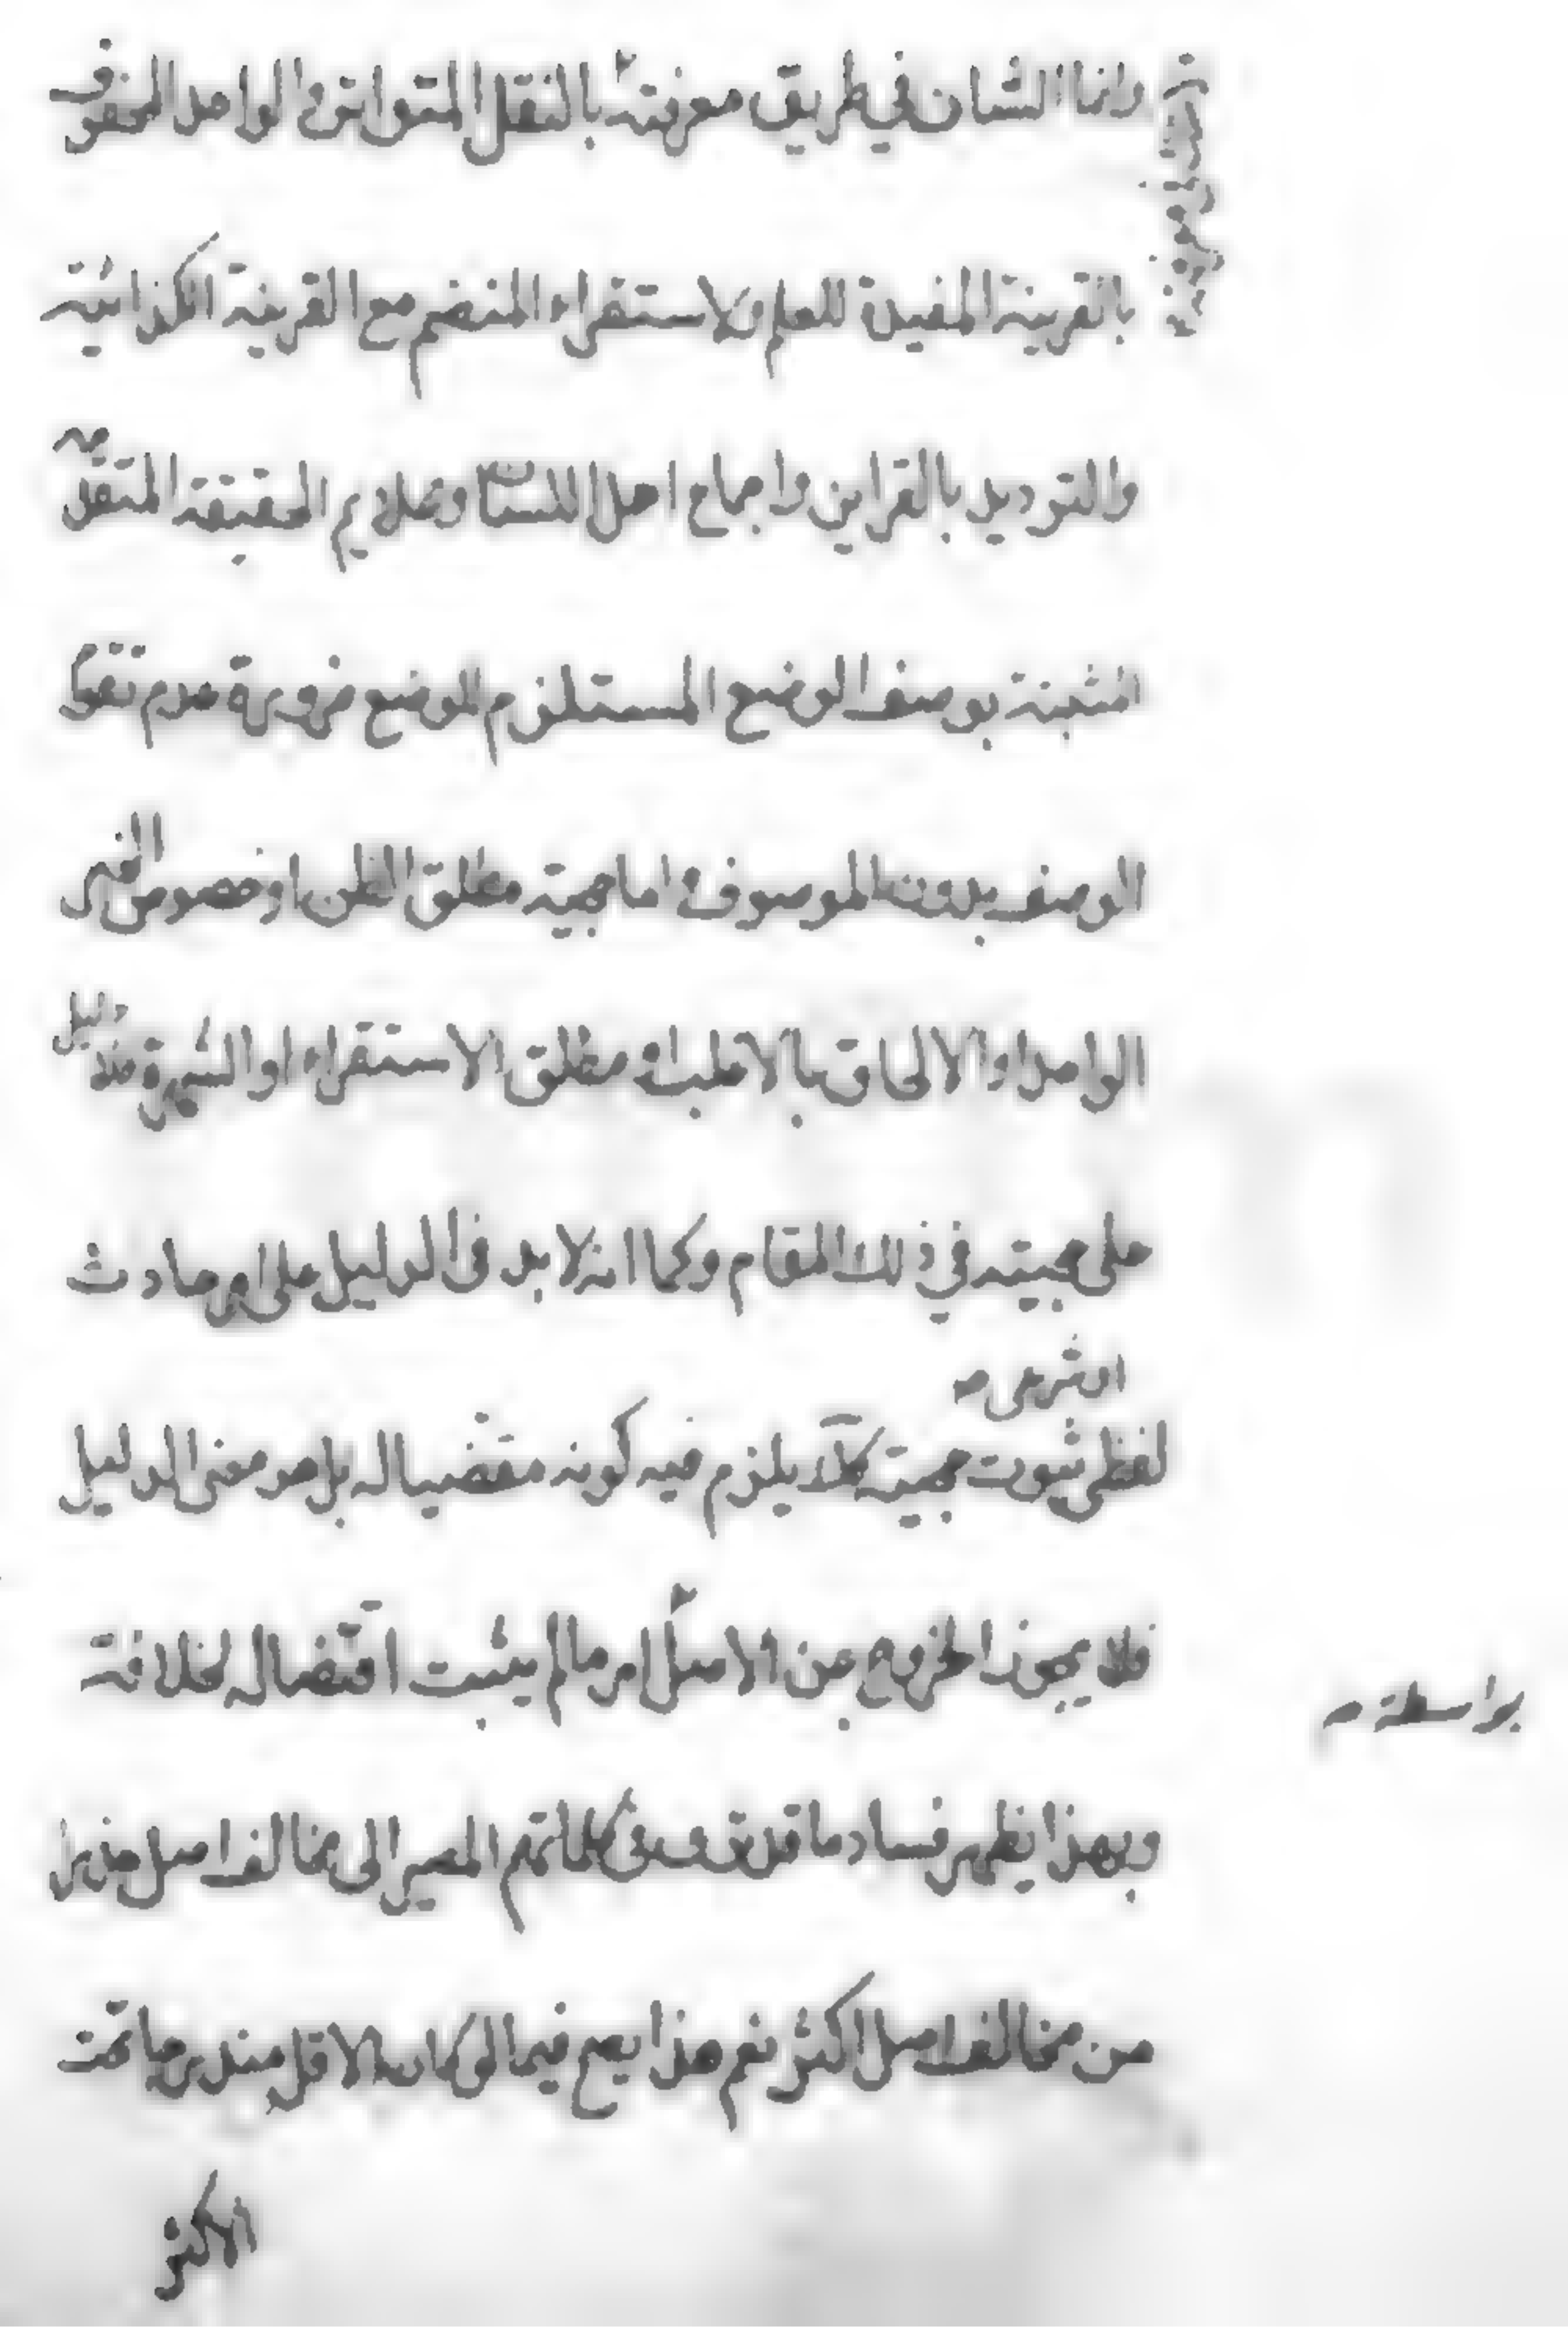 وانما الشان في طريق معرفته بالنقل المتواتر والواحد المحفوف
بالقرينة المفيدة للعلم والاستقراء المنضم مع القرينة الكذائية
والترديد بالقراين واجماع اهل اللسان وعلايم الحقيقة المتقدمه
المثبتة بوصف الوضع المستلزم للوضع ضرورة عدم تقوم
الوصف بدون الموصوف واما حجية مطلق الظن او خصوص الخبر
الواحد او الالحاق بالاغلب او مطلق الاستقراء او الشهرة فلا دليل
على حجيته في ذلك المقام وكما انه لابد فى الدليل على امر حادث
او شرعى صه
لفظى ثبوت حجيته كلا يلزم فيه كونه مقتضيا له بل هو معنى الدليل
فلا يجوز الخروج عن الاصل امر مالم يثبت اقتضاله لخلافة
بواسطة صه
وبهذا يظهر فساد ما قد فى كلماتهم المصير الى مخالف اصل حذرا
من مخالف اصل اكثر نعم هذا يصح فيما لو كان الاقل مندرجا تحت
الاكثر